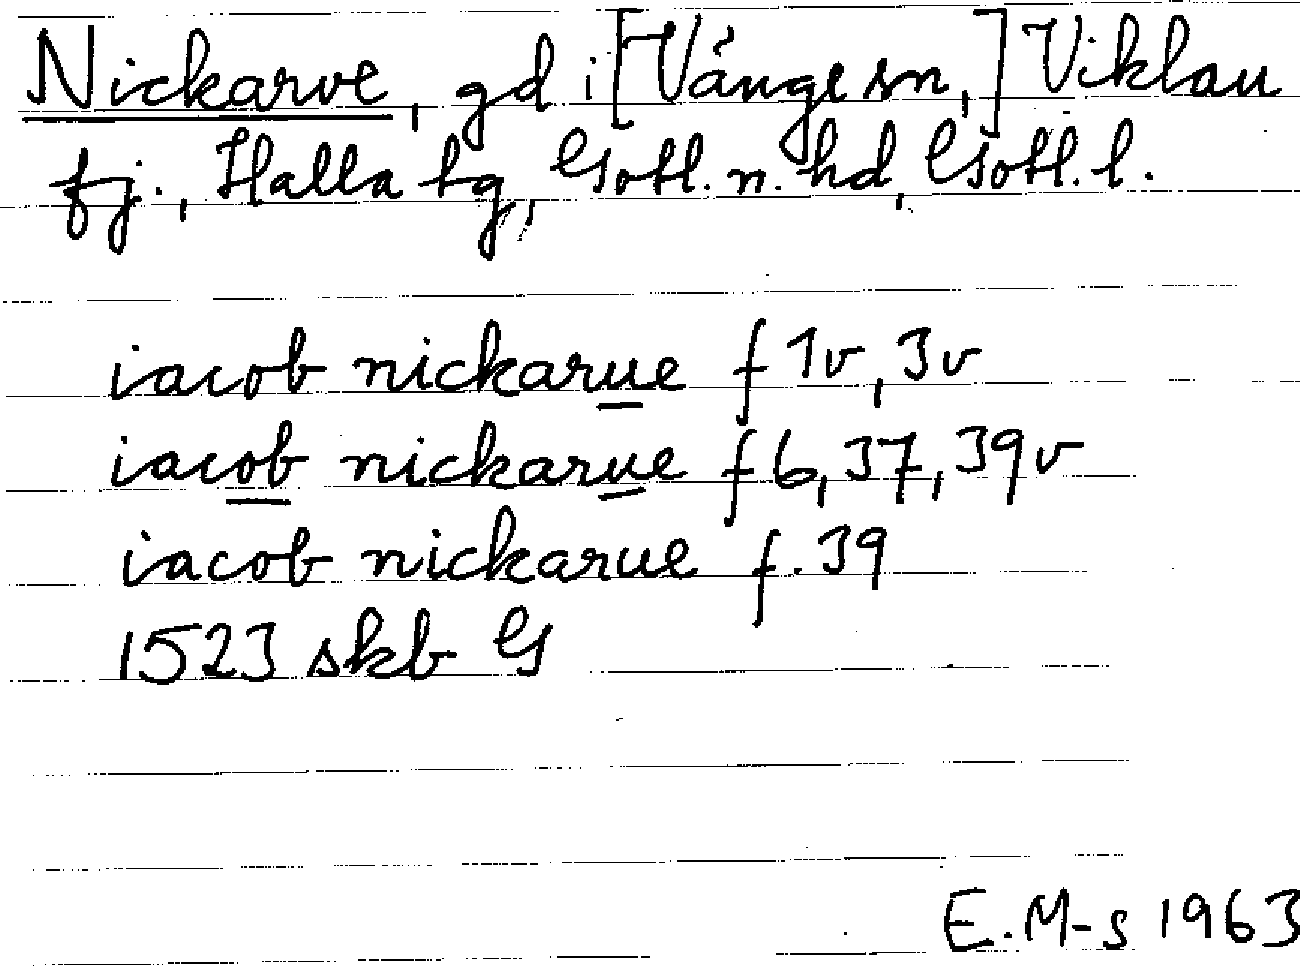 Nickarve, gd i [Vänge sn,] Viklau
fj., Halla tg, Gotl. n. hd, Gotl. l.
iacob nickarue f 1v, 3v
iacob nickarue f 6, 37, 39v
iacob nickarue f. 39
1523 skb G
E. M-s 1963